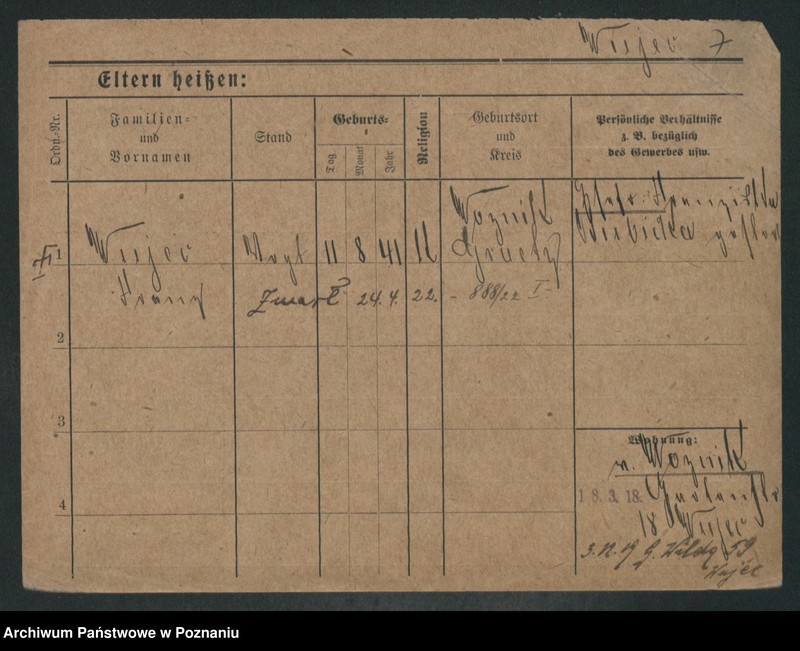 Wujec 7
Eltern heißen:
Ordn.-Nr.
Familien= und Vornamen
Stand
Geburts=
Tag
Monat
Jahr
Religion
Geburtsort und Kreis
Persönliche Verhältnisse
z. B. bezüglich
des Gewerbes usw.
1
Wujec
Franz
Vogt 11 8 41
Woznik
Graetz
Zmarł 24. 4. 22. - 888/22 I
2
3
4
Wohnung:
v. Woznik
18. 3. 18. Gartenstr
18 Wujec
59
Wujec
Archiwum Państwowe w Poznaniu